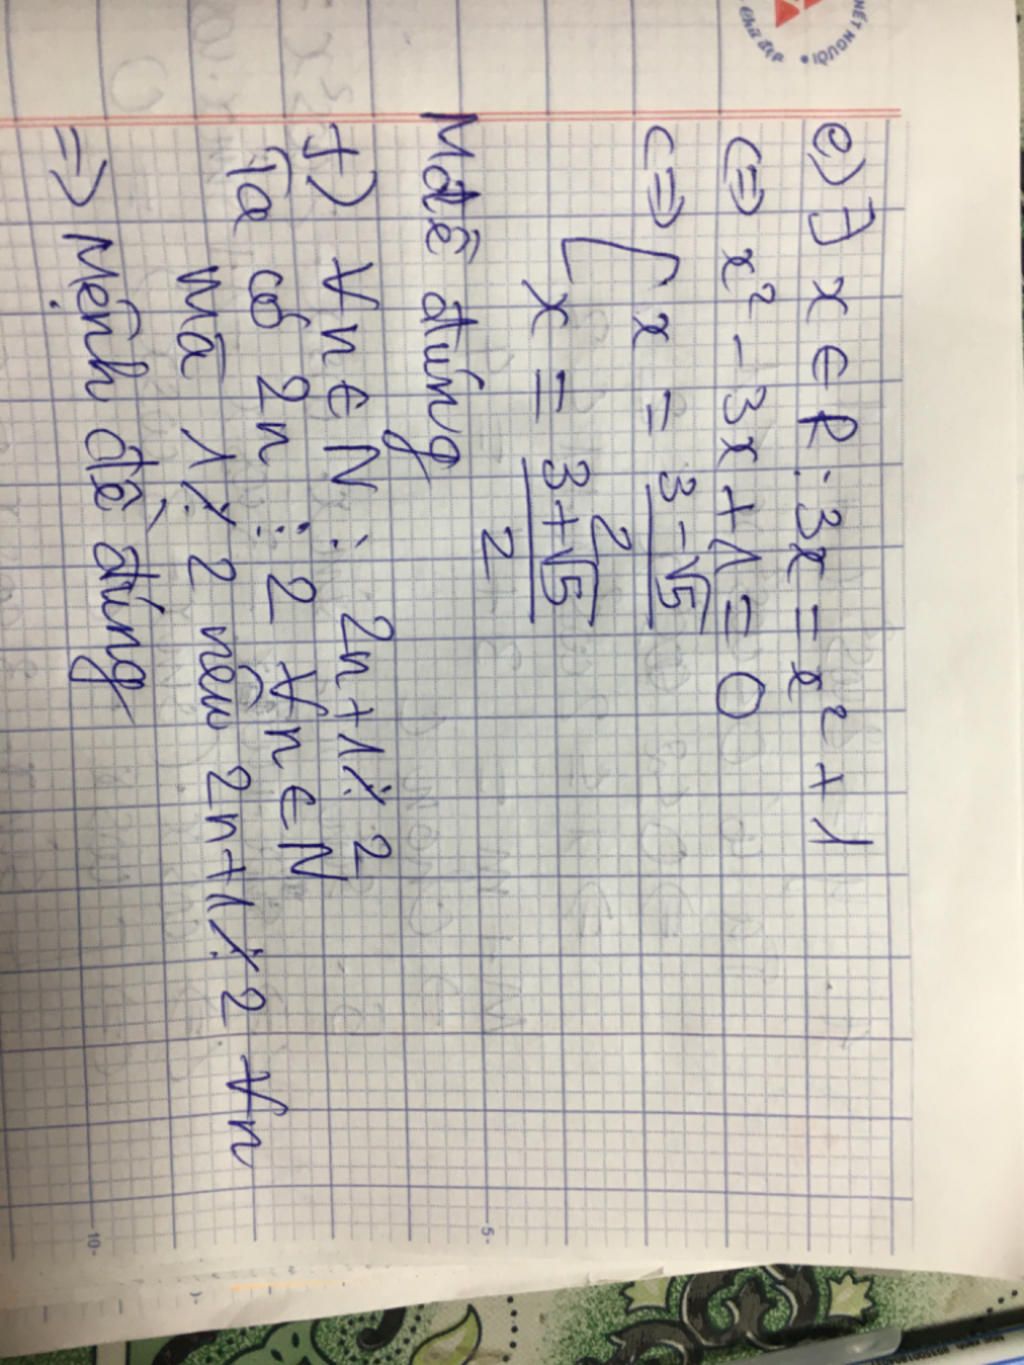 NÉT NGƯỜI
Chữ đẹp
e) ∃ x ∈ R : 3x = x² + 1
<=> x² - 3x + 1 = 0
<=> [ x = (3 - √5)/2
x = (3 + √5)/2
Mđề đúng
f) ∀n ∈ N : 2n + 1 ⋮̸ 2
Ta có 2n ⋮ 2 ∀n ∈ N
mà 1 ⋮̸ 2 nên 2n + 1 ⋮̸ 2 ∀n
=> Mệnh đề đúng
5-
10-